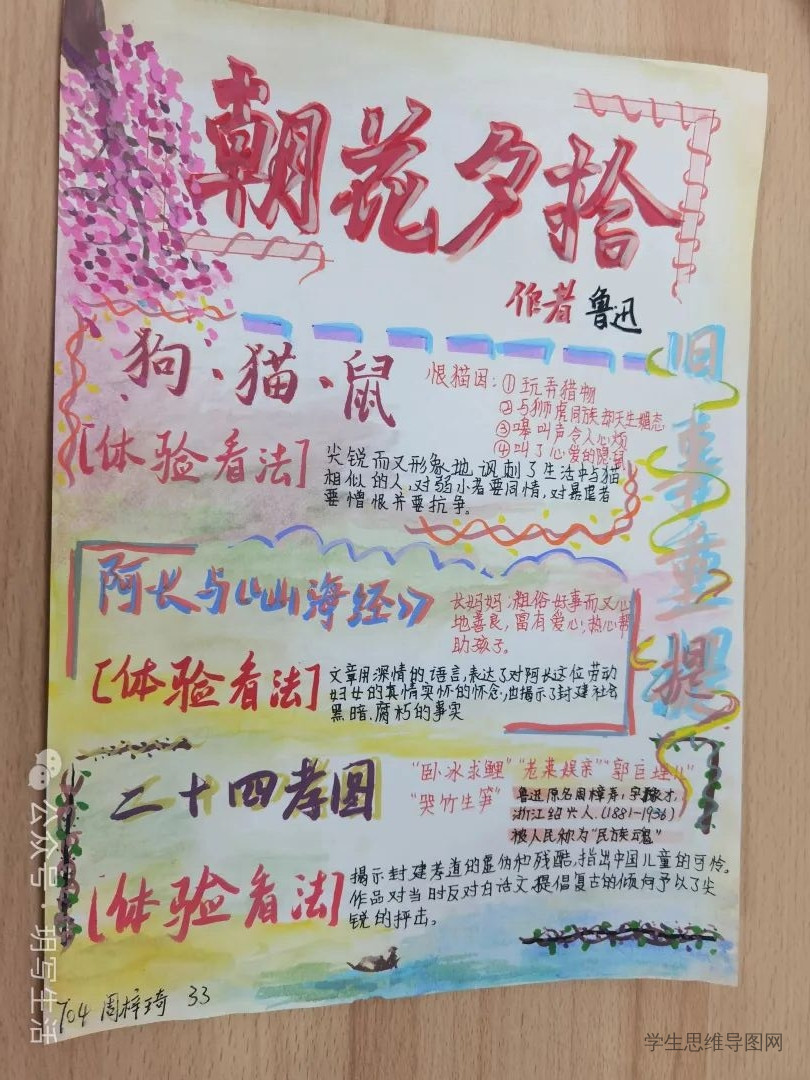 朝花夕拾
作者 鲁迅
旧事重提
狗、猫、鼠
恨猫因：①玩弄猎物
②与狮虎同族却天生媚态
③嗥叫声令人心烦
④叫了心爱的隐鼠
[体验看法]
尖锐而又形象地讽刺了生活中与猫
相似的人，对弱小者要同情，对暴虐者
要憎恨并要抗争。
阿长与《山海经》
长妈妈，粗俗好事而又心
地善良，富有爱心，热心帮
助孩子。
[体验看法]
文章用深情的语言，表达了对阿长这位劳动
妇女的真情实怀的怀念，也揭示了封建社会
黑暗、腐朽的事实
二十四孝图
“卧冰求鲤”“老莱娱亲”“郭巨埋儿”
“哭竹生笋”
鲁迅原名周樟寿，字豫才，
浙江绍兴人.(1881-1936)
被人民称为“民族魂”
[体验看法]
揭示封建孝道的虚伪和残酷，指出中国儿童的可怜。
作品对当时反对白话文提倡复古的倾向予以了尖
锐的抨击。
704 周梓琦 33
公众号·玥写生活
学生思维导图网